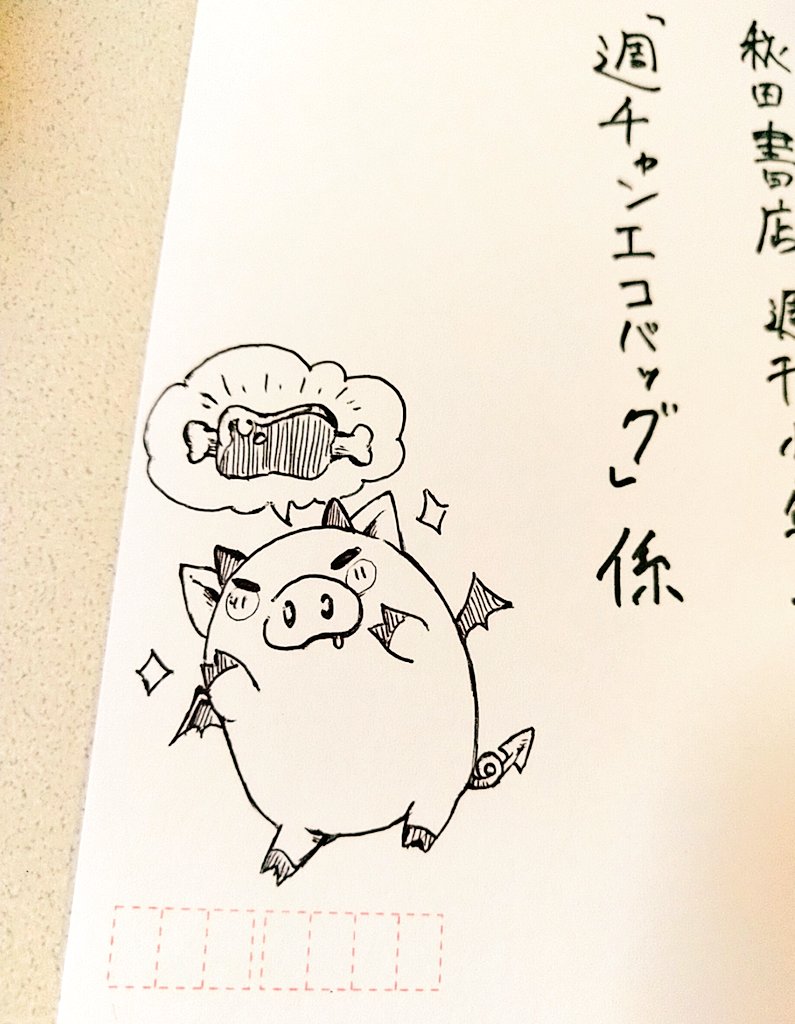 秋田書店 週刊少年
「週チャンエコバッグ」係